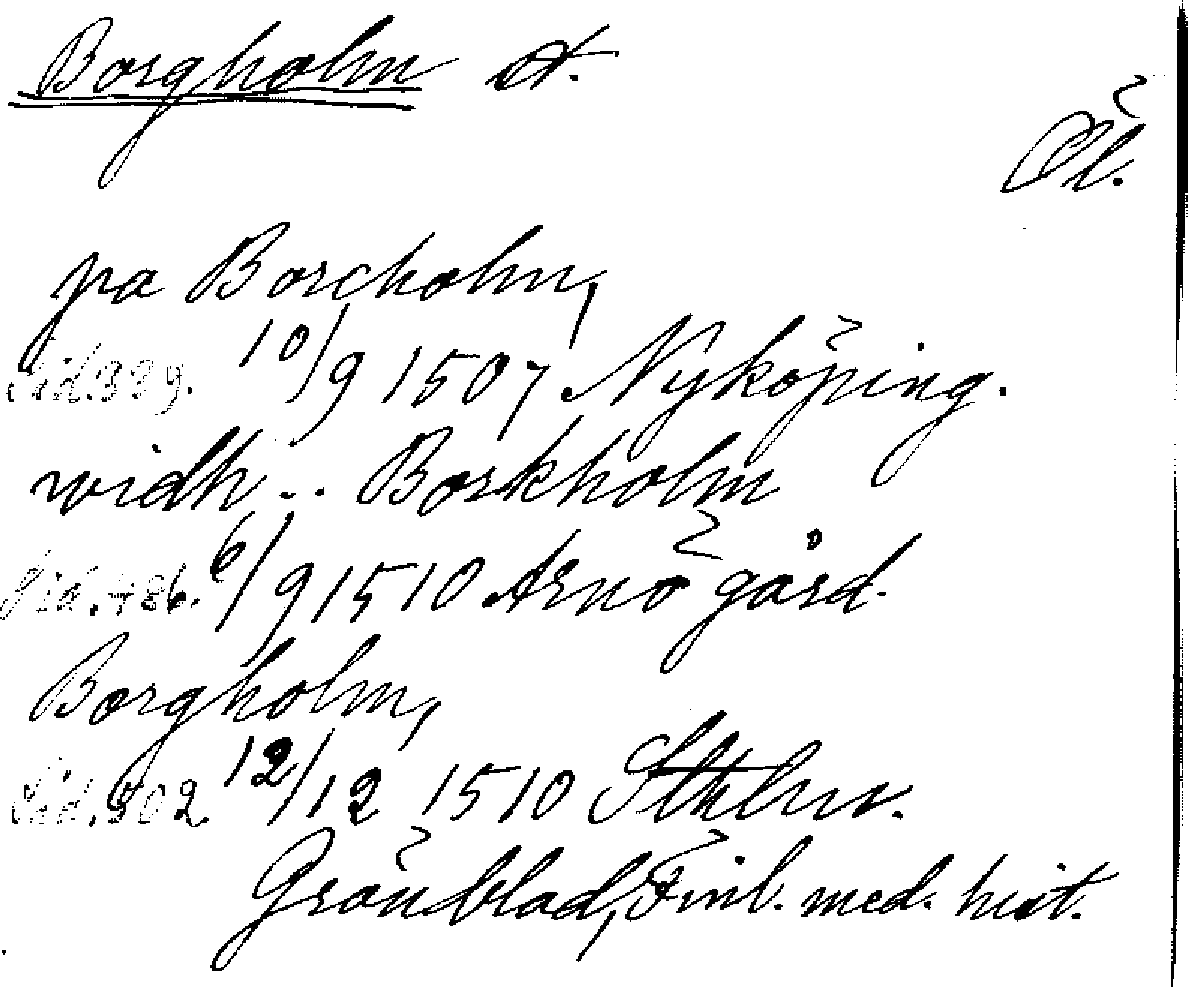 Borgholm st.
Öl.
pa Borckolm,
Sid. 339. 10/9 1507 Nyköping.
widh .. Borkholm
Sid. 486. 6/9 1510 Arnö gård.
Borgholm,
Sid. 502 12/12 1510 Sthlm.
Grönblad, Finl. med. hist.